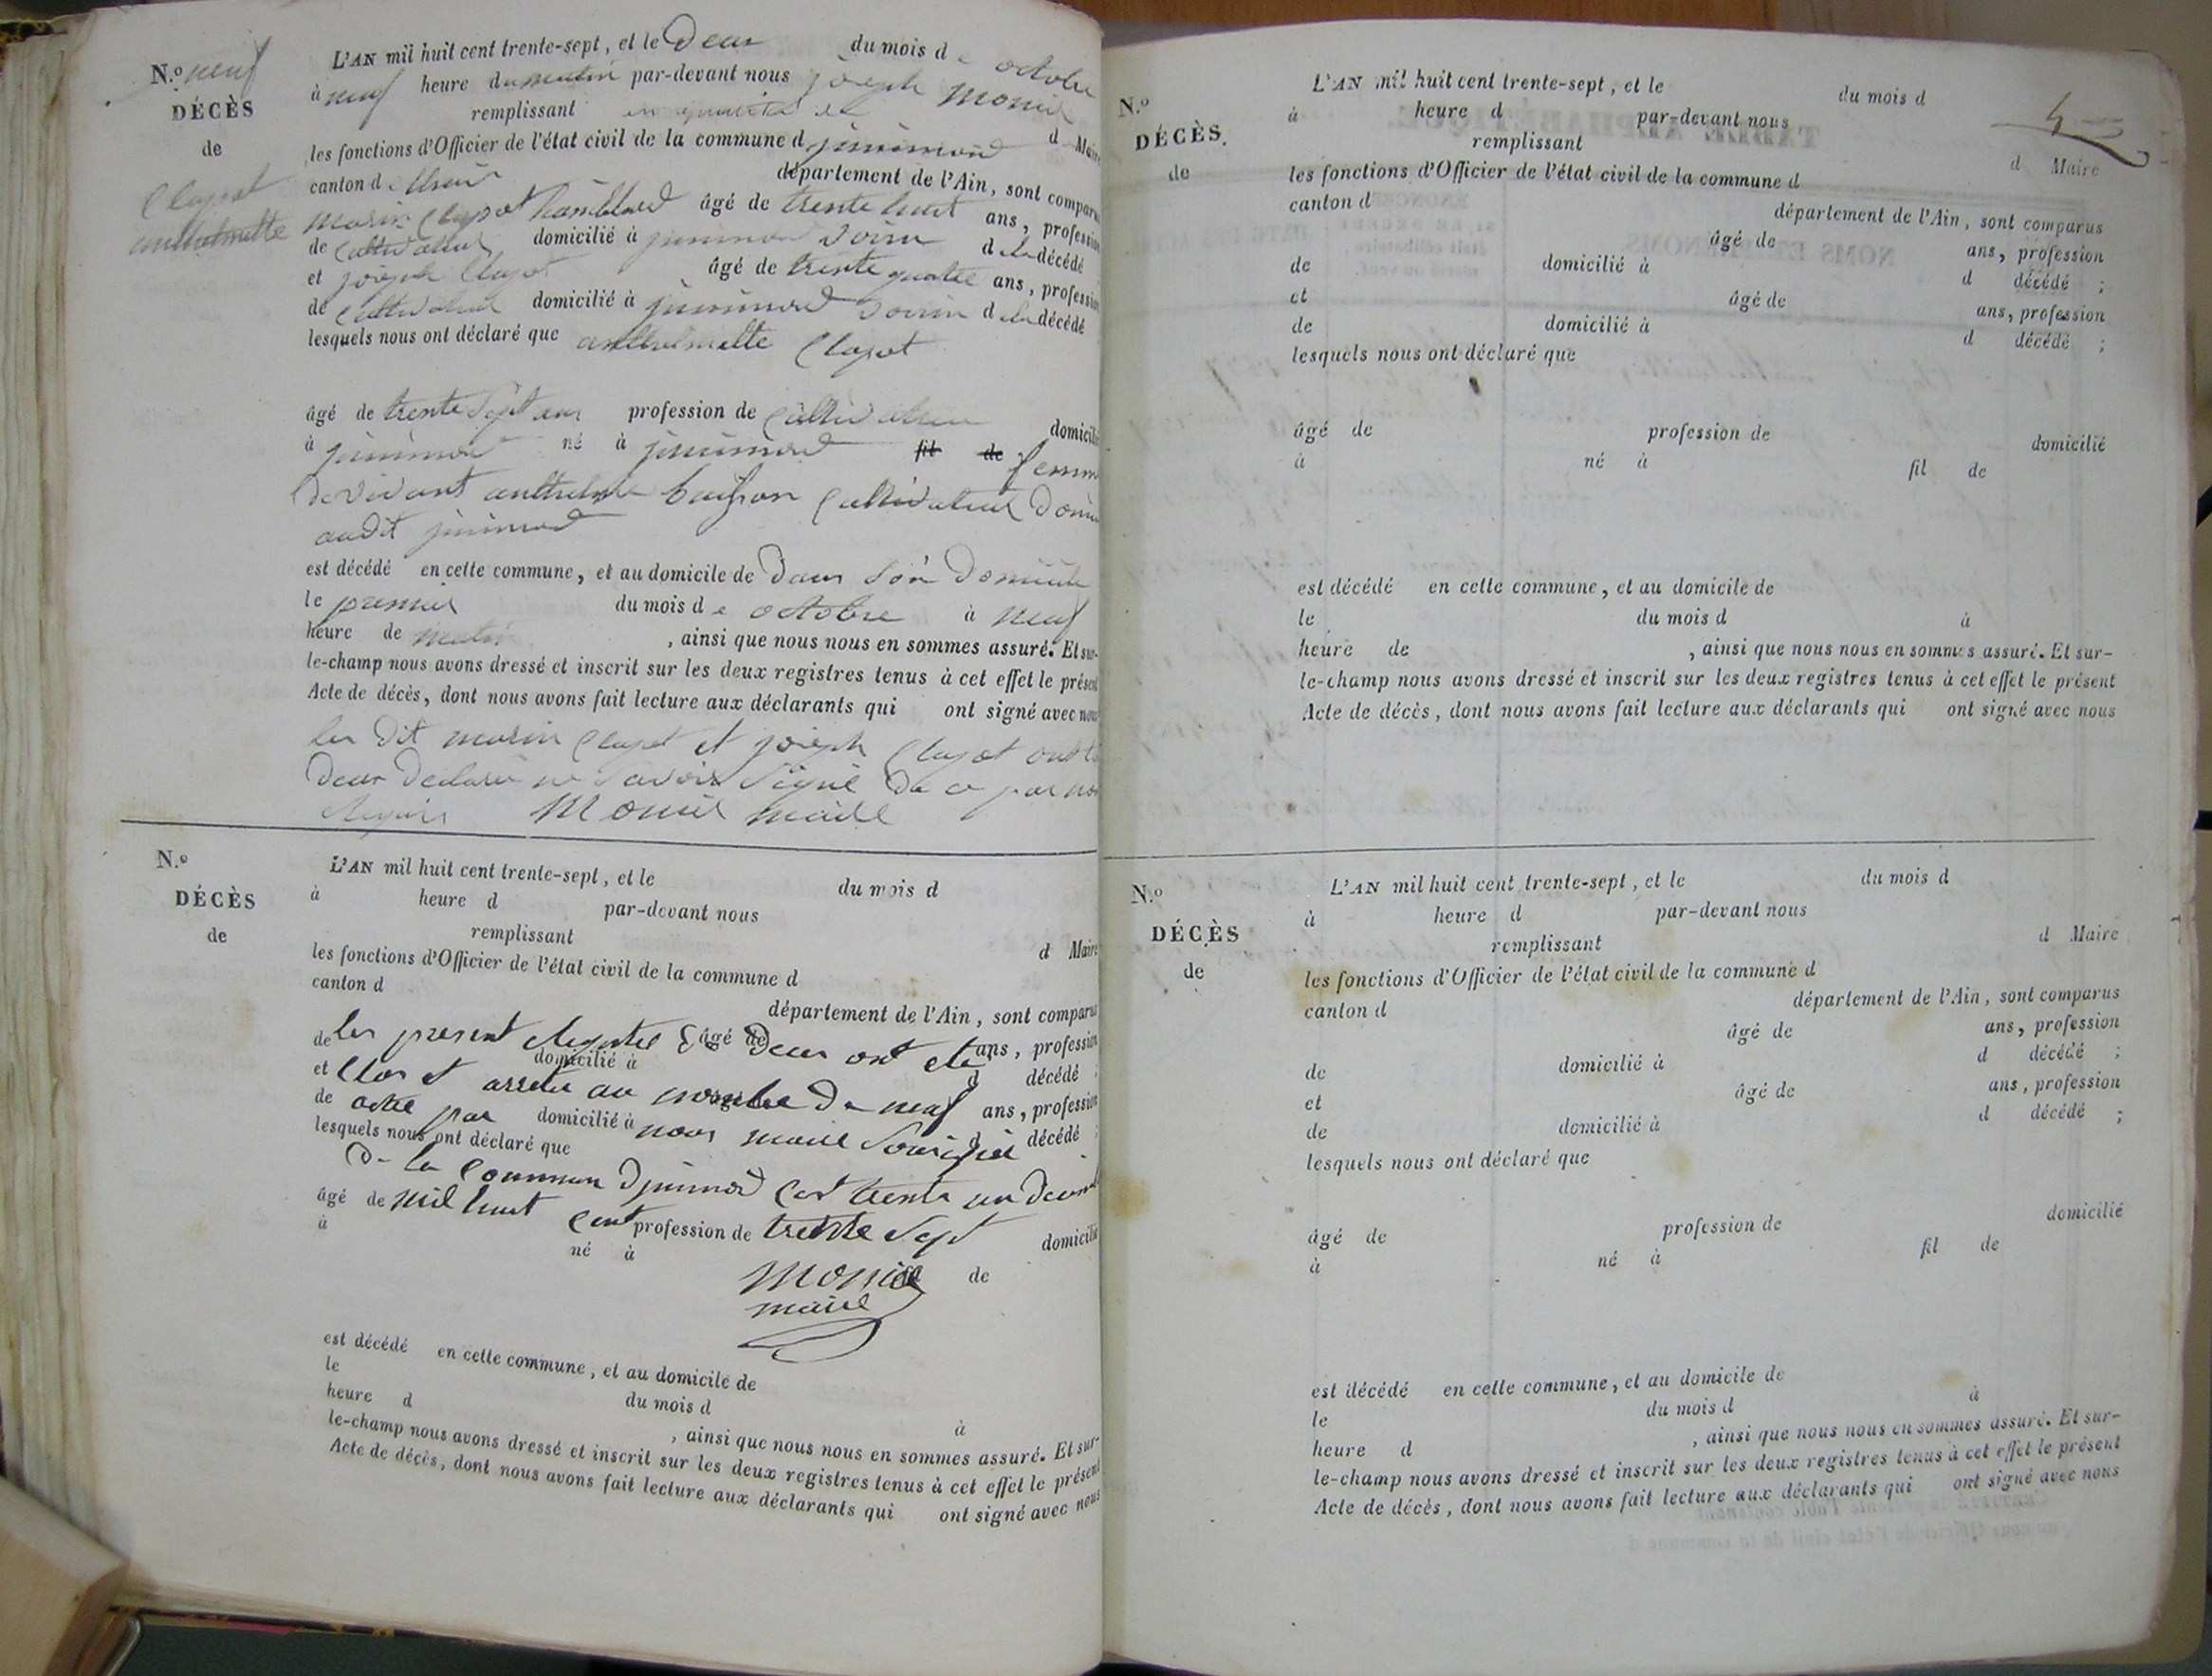 N.o neuf
DÉCÈS
de
Clapot
anthelmette
L'AN mil huit cent trente-sept, et le deux du mois de octobre
à neuf heure du matin par-devant nous joseph Monier
remplissant en qualité de d Maire
les fonctions d'Officier de l'état civil de la commune d jujurieux
canton de département de l'Ain, sont comparus
marin Clapot âgé de trente huit ans, profession
de Cultivateur domicilié à voisin de la décédé
et joseph Clapot âgé de trente quatre ans, profession
de Cultivateur domicilié à voisin de la décédé
lesquels nous ont déclaré que anthelmette Clapot
âgé de trente sept ans profession de Cultivateur domicilié
à né à fil de femme
de vivant anthelme Cultivateur
audit
est décédé en cette commune, et au domicile de dans son domicile
le premier du mois de octobre à neuf
heure de matin, ainsi que nous nous en sommes assuré. Et sur-
le-champ nous avons dressé et inscrit sur les deux registres tenus à cet effet le présent
Acte de décès, dont nous avons fait lecture aux déclarants qui ont signé avec nous
les dit marin Clapot et joseph Clapot ont
deux déclaré ne savoir signé de ce par nous
Monier maire
N.o
DÉCÈS
de
L'AN mil huit cent trente-sept, et le du mois d
à heure d par-devant nous
remplissant d Maire
les fonctions d'Officier de l'état civil de la commune d
canton d département de l'Ain, sont comparus
âgé de ans, profession
de domicilié à d décédé ;
et âgé de ans, profession
de domicilié à d décédé ;
lesquels nous ont déclaré que
les present Registre de deux ont été
Clos et arreté au nombre de neuf
acte par nous maire
de la commune trente un
mil huit cent trente sept
Monier
maire
âgé de profession de domicilié
à né à fil de
est décédé en cette commune, et au domicile de
le du mois d à
heure d , ainsi que nous nous en sommes assuré. Et sur-
le-champ nous avons dressé et inscrit sur les deux registres tenus à cet effet le présent
Acte de décès, dont nous avons fait lecture aux déclarants qui ont signé avec nous
N.o
DÉCÈS.
de
L'AN mil huit cent trente-sept, et le du mois d
à heure d par-devant nous
remplissant d Maire
les fonctions d'Officier de l'état civil de la commune d
canton d département de l'Ain, sont comparus
âgé de ans, profession
de domicilié à d décédé ;
et âgé de ans, profession
de domicilié à d décédé ;
lesquels nous ont déclaré que
âgé de profession de domicilié
à né à fil de
est décédé en cette commune, et au domicile de
le du mois d à
heure de , ainsi que nous nous en sommes assuré. Et sur-
le-champ nous avons dressé et inscrit sur les deux registres tenus à cet effet le présent
Acte de décès, dont nous avons fait lecture aux déclarants qui ont signé avec nous
N.o
DÉCÈS
de
L'AN mil huit cent trente-sept, et le du mois d
à heure d par-devant nous
remplissant d Maire
les fonctions d'Officier de l'état civil de la commune d
canton d département de l'Ain, sont comparus
âgé de ans, profession
de domicilié à d décédé ;
et âgé de ans, profession
de domicilié à d décédé ;
lesquels nous ont déclaré que
âgé de profession de domicilié
à né à fil de
est décédé en cette commune, et au domicile de
le du mois d à
heure d , ainsi que nous nous en sommes assuré. Et sur-
le-champ nous avons dressé et inscrit sur les deux registres tenus à cet effet le présent
Acte de décès, dont nous avons fait lecture aux déclarants qui ont signé avec nous